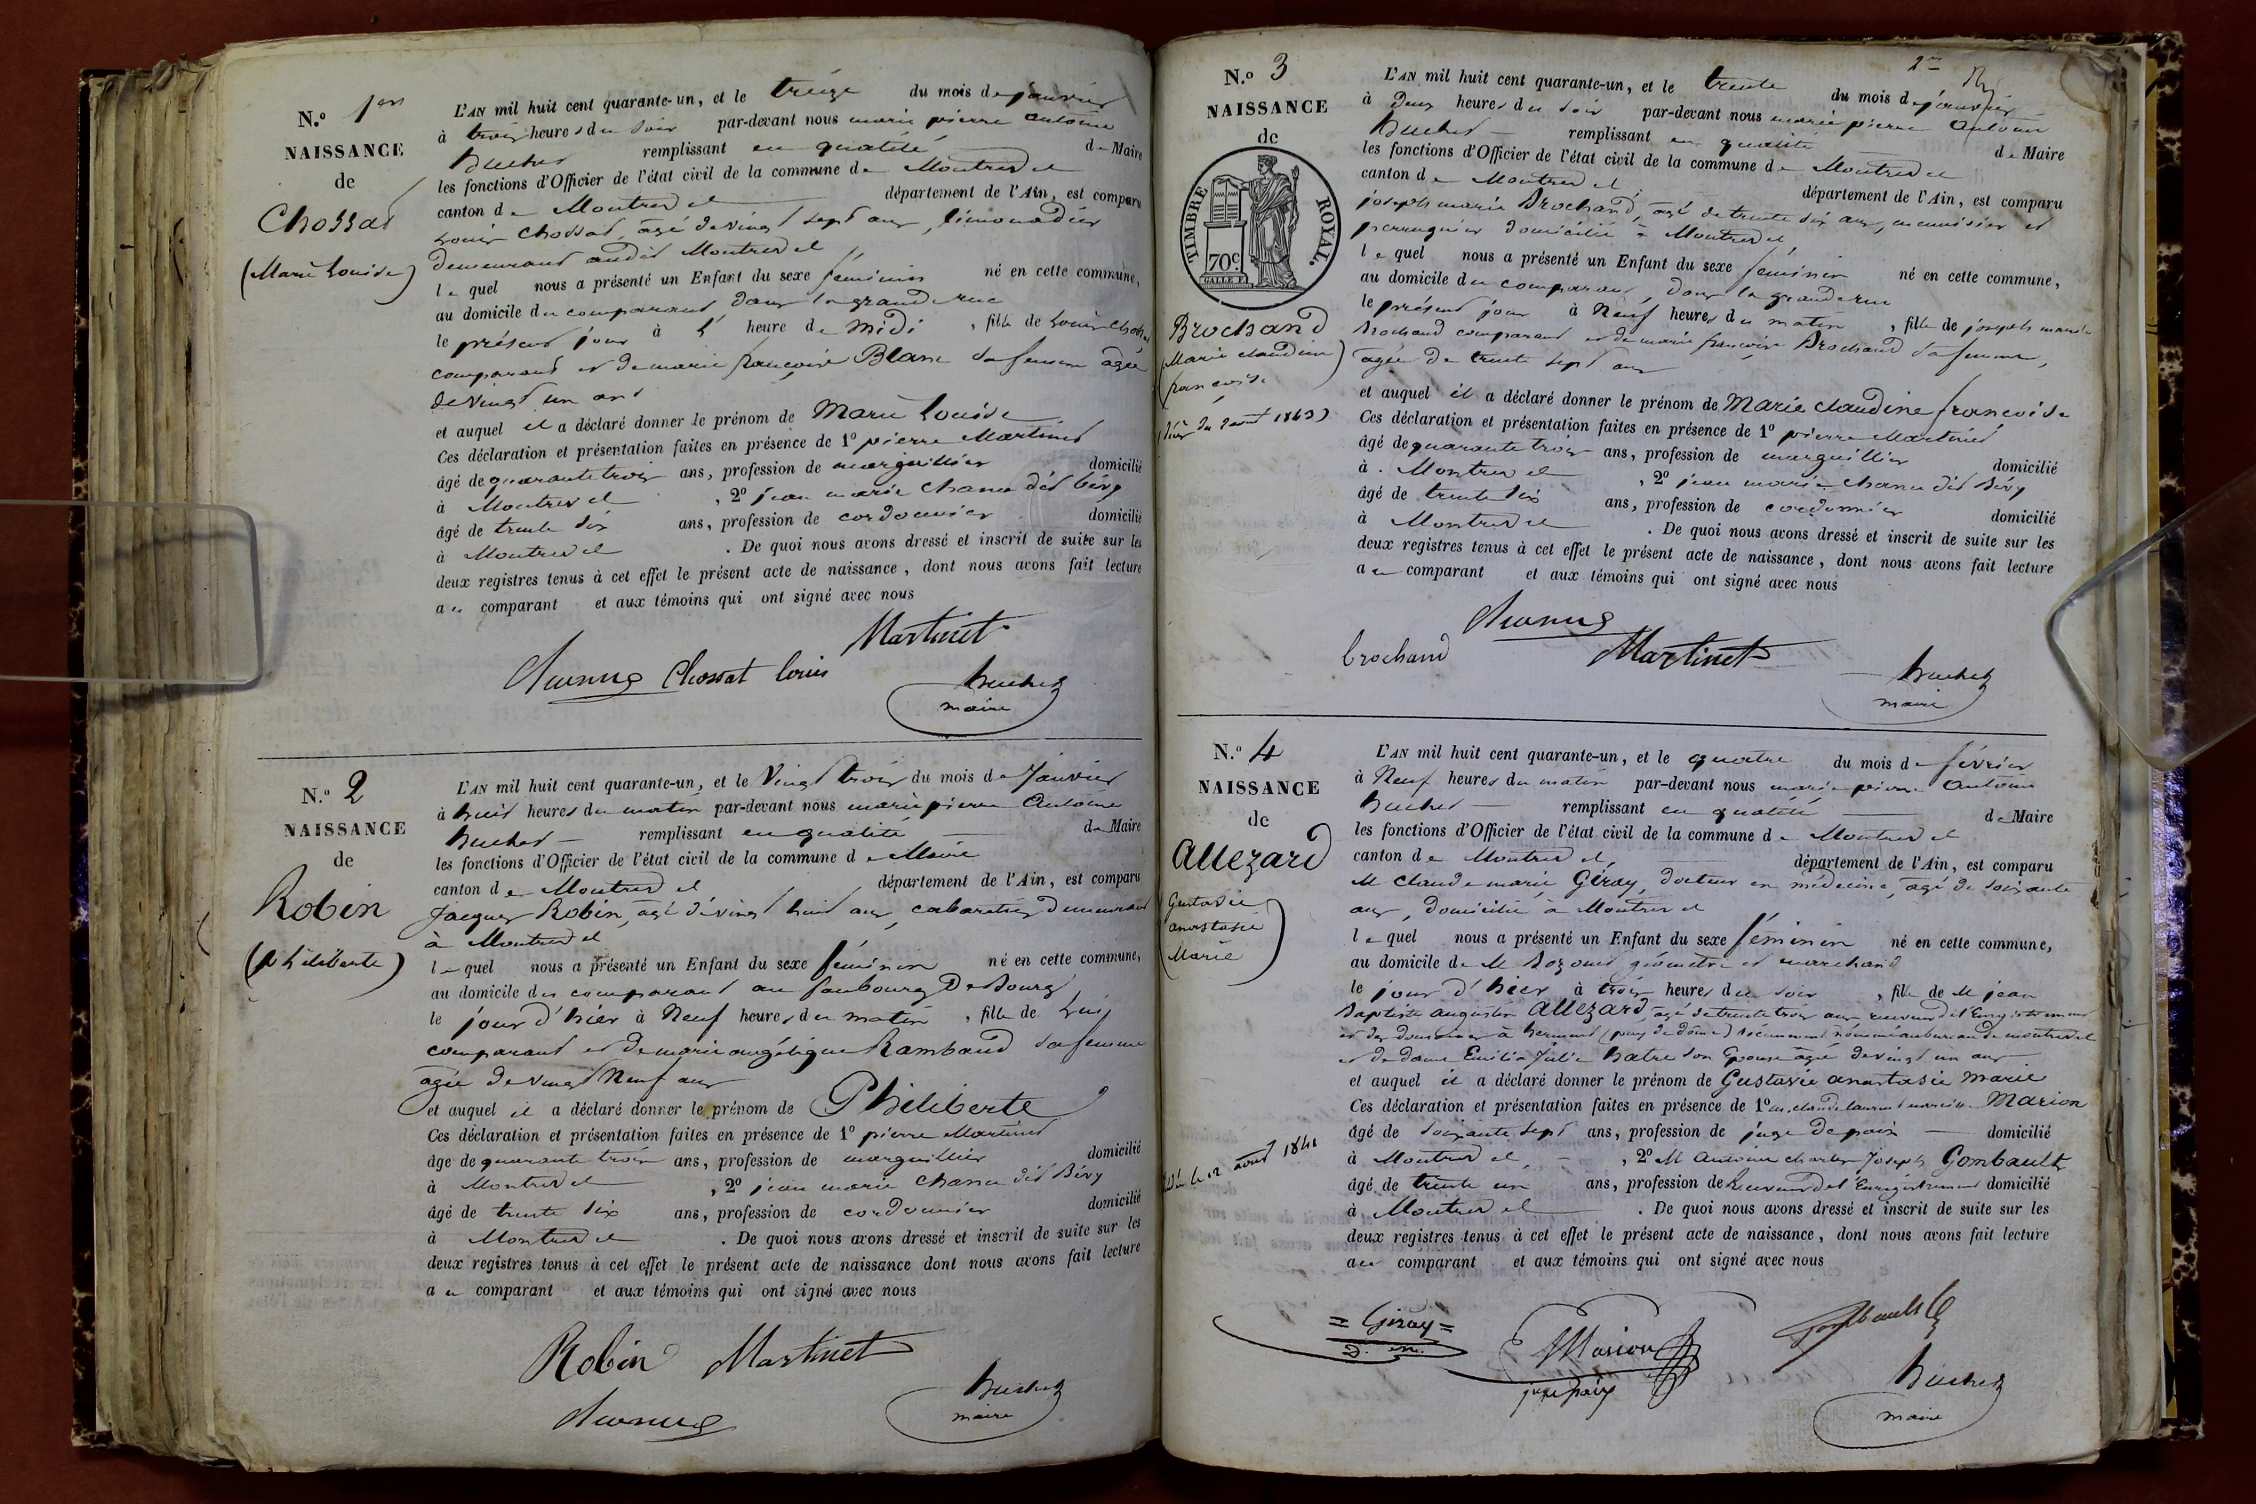 N.º 1er
NAISSANCE
de
Chossat
(Marie Louise)
L'AN mil huit cent quarante-un, et le treize du mois de janvier
à trois heures du soir par-devant nous marie pierre antoine
Buchet remplissant en qualité de Maire
les fonctions d'Officier de l'état civil de la commune de Montrevel
canton de Montrevel département de l'Ain, est comparu
Louis Chossat, agé de vingt sept ans, limonadier
demeurant audit Montrevel
lequel nous a présenté un Enfant du sexe féminin né en cette commune,
au domicile du comparant, dans la grande rue
le présent jour à heure de midi, fille de Louis Chossat
comparant et de marie françoise Blanc sa femme agée
de vingt un ans
et auquel il a déclaré donner le prénom de Marie Louise
Ces déclaration et présentation faites en présence de 1º pierre Martinet
âgé de quarante trois ans, profession de marguillier domicilié
à Montrevel, 2º jean marie Chanu dit Bévy
âgé de trente six ans, profession de cordonnier domicilié
à Montrevel. De quoi nous avons dressé et inscrit de suite sur les
deux registres tenus à cet effet le présent acte de naissance, dont nous avons fait lecture
au comparant et aux témoins qui ont signé avec nous
Martinet
Chossat Louis
Buchet
maire
N.º 2
NAISSANCE
de
Robin
(philiberte)
L'AN mil huit cent quarante-un, et le Vingt trois du mois de Janvier
à huit heures du matin par-devant nous marie pierre antoine
Buchet remplissant en qualité de Maire
les fonctions d'Officier de l'état civil de la commune de Maire
canton de Montrevel département de l'Ain, est comparu
Jacques Robin, agé de vingt huit ans, cabaretier demeurant
à Montrevel
lequel nous a présenté un Enfant du sexe féminin né en cette commune,
au domicile du comparant au faubourg De Bourg
le jour d'hier à Neuf heures du matin, fille de lui
comparant et de marie angélique Rambaud sa femme
agée de vingt Neuf ans
et auquel il a déclaré donner le prénom de Philiberte
Ces déclaration et présentation faites en présence de 1º pierre Martinet
âgé de quarante trois ans, profession de marguillier domicilié
à Montrevel, 2º jean marie Chanu dit Bévy
âgé de trente six ans, profession de cordonnier domicilié
à Montrevel. De quoi nous avons dressé et inscrit de suite sur les
deux registres tenus à cet effet le présent acte de naissance dont nous avons fait lecture
au comparant et aux témoins qui ont signé avec nous
Robin Martinet
Buchet
maire
2me
N.º 3
NAISSANCE
de
TIMBRE ROYAL.
70c
Brochand
(Marie claudine
françoise)
L'AN mil huit cent quarante-un, et le trente du mois de janvier
à deux heures du soir par-devant nous marie pierre antoine
Buchet remplissant en qualité de Maire
les fonctions d'Officier de l'état civil de la commune de Montrevel
canton de Montrevel département de l'Ain, est comparu
joseph marie Brochand, agé de trente six ans, menuisier et
perruquier domicilié à Montrevel
lequel nous a présenté un Enfant du sexe féminin né en cette commune,
au domicile du comparant dans la grande rue
le présent jour à Neuf heures du matin, fille de joseph marie
Brochand comparant et de marie françoise Brochand sa femme,
agée de trente sept ans
et auquel il a déclaré donner le prénom de Marie claudine françoise
Ces déclaration et présentation faites en présence de 1º pierre Martinet
âgé de quarante trois ans, profession de marguillier domicilié
à Montrevel, 2º jean marie Chanu dit Bévy
âgé de trente six ans, profession de cordonnier domicilié
à Montrevel. De quoi nous avons dressé et inscrit de suite sur les
deux registres tenus à cet effet le présent acte de naissance, dont nous avons fait lecture
au comparant et aux témoins qui ont signé avec nous
brochand Martinet
Buchet
maire
N.º 4
NAISSANCE
de
Allezard
(Gustavie
anastasie
Marie)
12 aout 1841
L'AN mil huit cent quarante-un, et le quatre du mois de février
à Neuf heures du matin par-devant nous marie pierre antoine
Buchet remplissant en qualité de Maire
les fonctions d'Officier de l'état civil de la commune de Montrevel
canton de Montrevel, département de l'Ain, est comparu
M claude marie Géray, docteur en médecine, agé de soixante
ans, domicilié à Montrevel
lequel nous a présenté un Enfant du sexe féminin né en cette commune,
au domicile de M géomètre et marchand
le jour d'hier à trois heures du soir, fille de M jean
Baptiste augustin Allezard, agé de trente trois ans receveur de l'Enregistrement
et des domaines à herment (puy de dôme) récemment nommé au bureau de montrevel
et de dame Emilie Julie Batre son Epouse agée de vingt un ans
et auquel il a déclaré donner le prénom de Gustavie anastasie Marie
Ces déclaration et présentation faites en présence de 1º M. claude laurent Marion
âgé de soixante sept ans, profession de juge de paix domicilié
à Montrevel, 2º M antoine charles Joseph Gombault
âgé de trente un ans, profession de Receveur de l'Enregistrement domicilié
à Montrevel. De quoi nous avons dressé et inscrit de suite sur les
deux registres tenus à cet effet le présent acte de naissance, dont nous avons fait lecture
au comparant et aux témoins qui ont signé avec nous
= Géray =
D. m.
Marion
Gombault
Buchet
maire